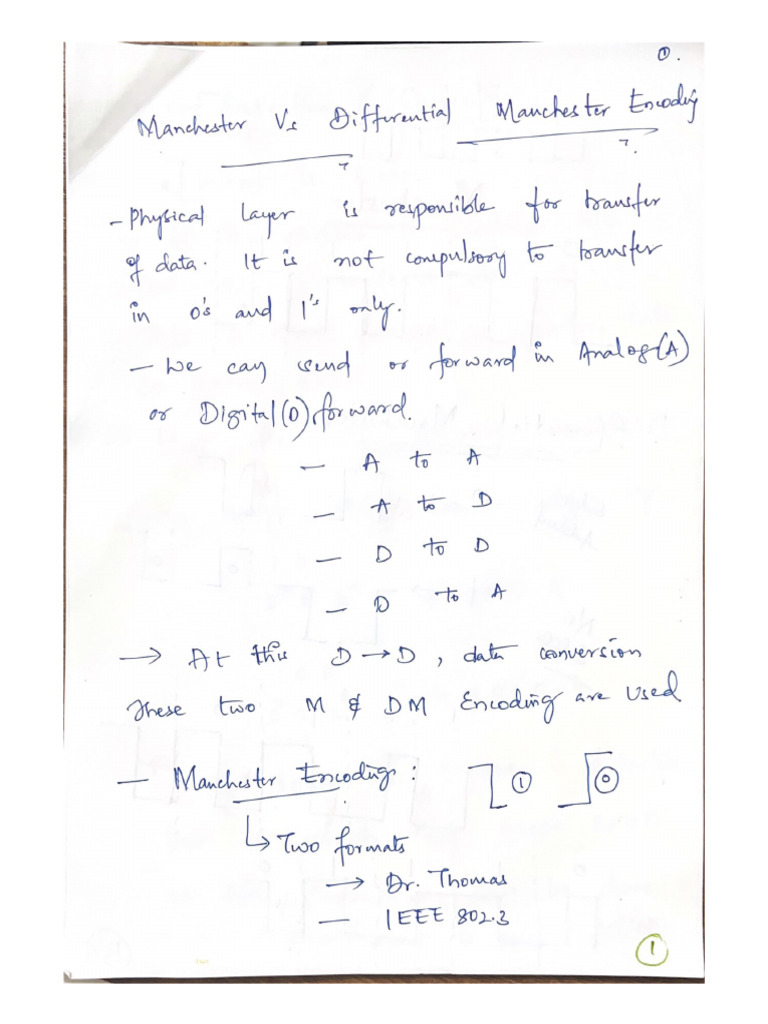 ①.
Manchester Vs Differential Manchester Encoding
- Physical Layer is responsible for transfer
of data. It is not compulsory to transfer
in 0's and 1's only.
- We can send or forward in Analog(A)
or Digital(D) forward.
- A to A
- A to D
- D to D
- D to A
→ At this D → D, data conversion
These two M & DM Encoding are Used
- Manchester Encoding: ① ⓪
↳ Two formats
→ Dr. Thomas
- IEEE 802.3
①